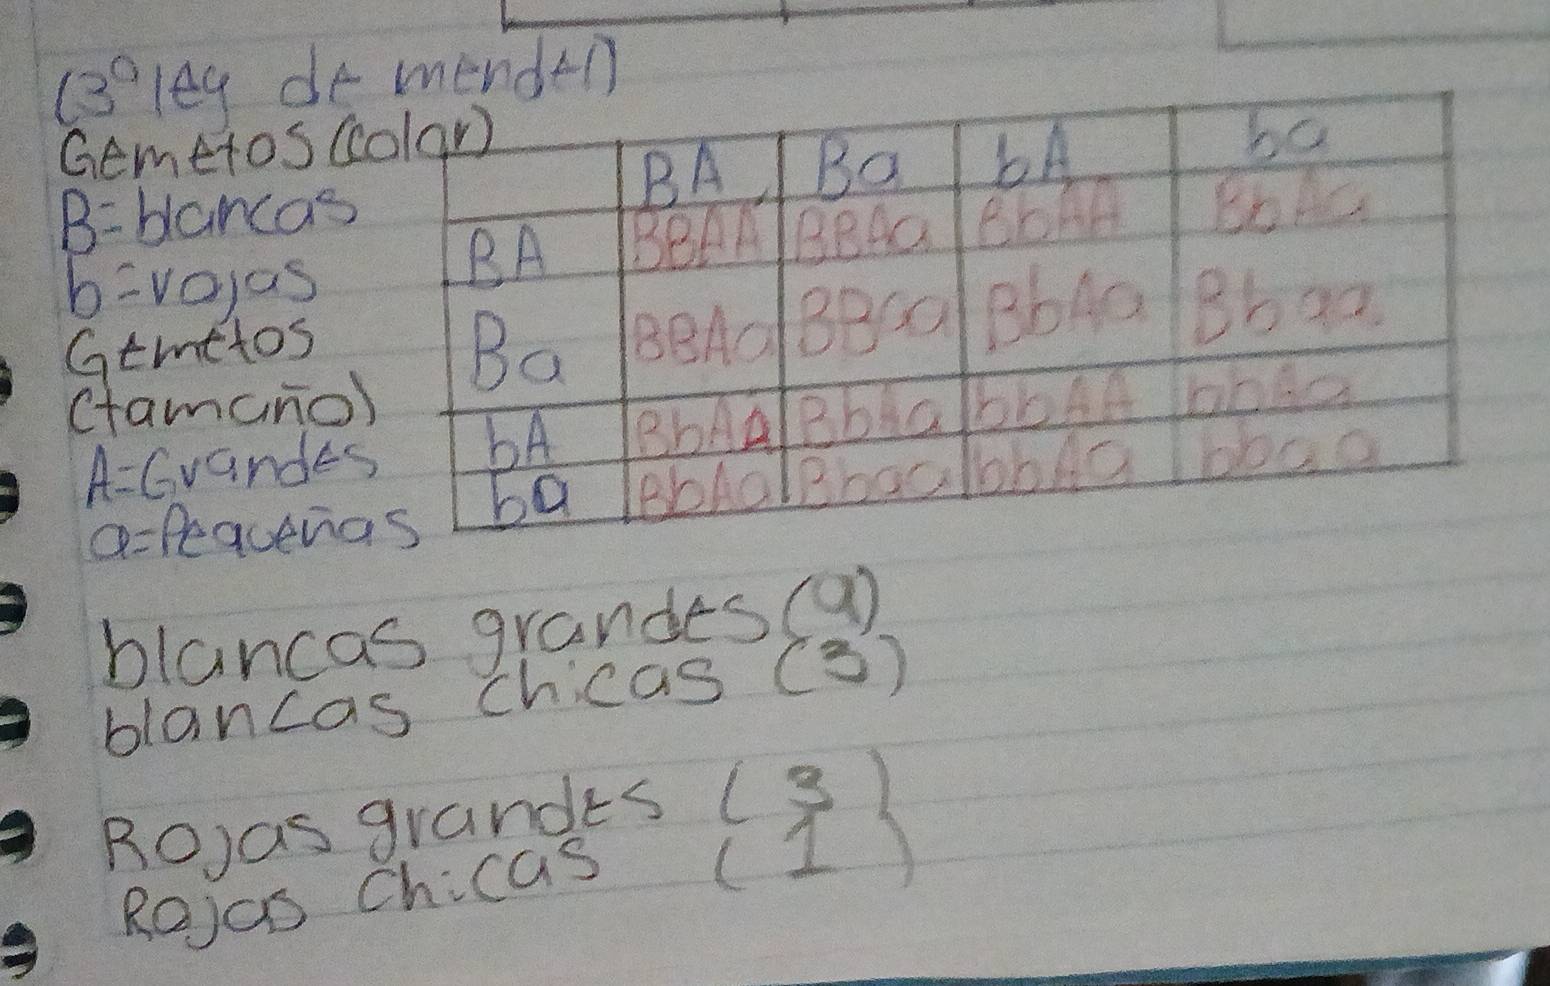 (3° ley de mendel)
Gemetos (color)
B=blancas
b=rojas
Gemetos
(tamaño)
A=Grandes
a=Pequeñas
BA Ba bA ba
BA BBAA BBAa BbAA BbAa
Ba BBAa BBaa BbAa Bbaa
bA BbAA BbAa bbAA bbAa
ba BbAa Bbaa bbAa bbaa
blancas grandes (9)
blancas chicas (3)
Rojas grandes (3)
Rojas chicas (1)